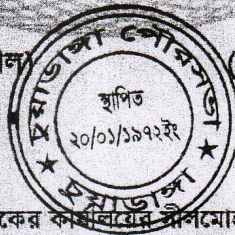 চুয়াডাঙ্গা পৌরসভা
স্থাপিত
২০/০১/১৯৭২ইং
চুয়াডাঙ্গা
কের কার্যালয়ের সীলমোহ